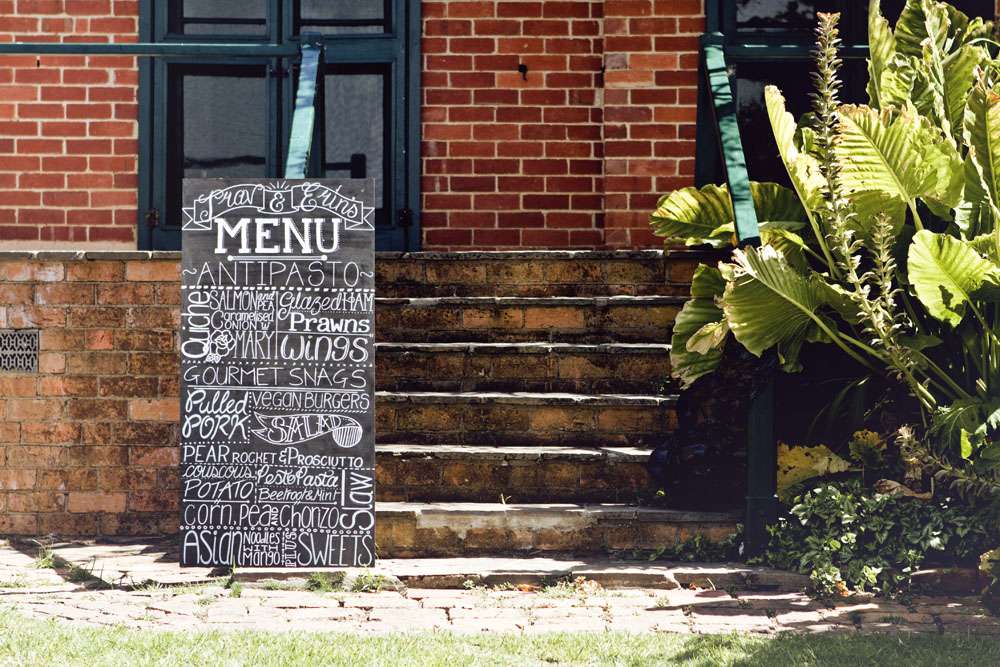 Trav & Erins
MENU
~ANTIPASTO~
Quiche
SALMON AND PEA
Caramelised
ONION W
ROSEMARY
Glazed HAM
Prawns
Wings
GOURMET SNAGS
Pulled
PORK
VEGAN BURGERS
SALAD
PEAR ROCKET & PROSCIUTTO
couscous
POTATO
Pesto Pasta
Beetroot & Mint
SLAW
CORN, PEA AND CHORIZO
ASIAN NOODLES WITH MANGO
PLUS SWEETS